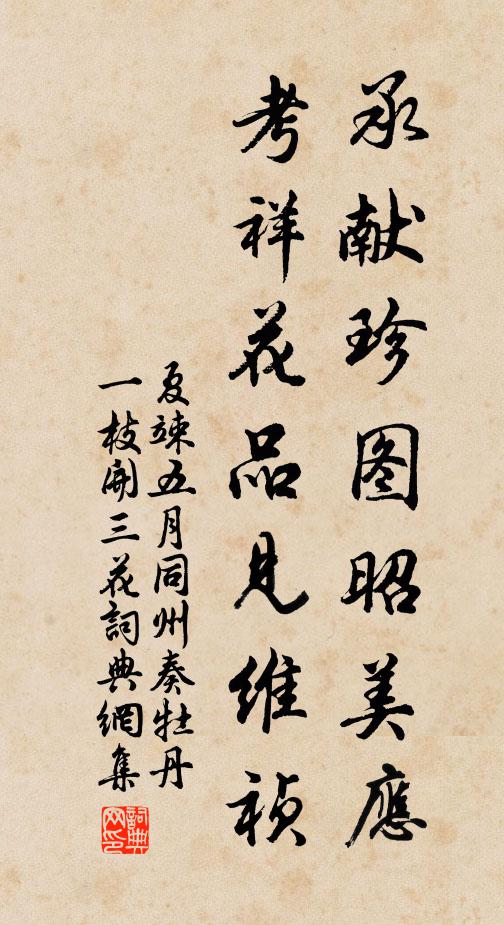 承献珍图昭美應
考祥花品見维禎
夏竦五月同州奏牡丹
一枝開三花詞典網集
詞典网印